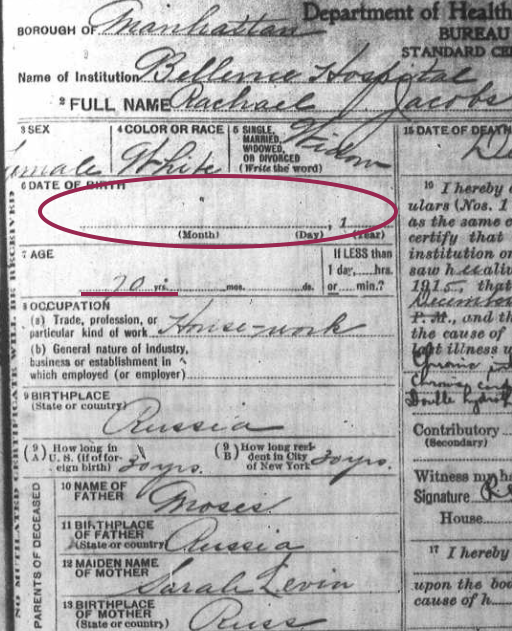 Department of Health
BOROUGH OF Manhattan
BUREAU
STANDARD CE
Name of Institution Bellevue Hospital
2 FULL NAME Rachael Jacobs
3 SEX
4 COLOR OR RACE
5 SINGLE,
MARRIED,
WIDOWED,
OR DIVORCED
(Write the word)
Widow
15 DATE OF DEATH
De
emale White
6 DATE OF BIRTH
, 1
(Month) (Day) (Year)
16 I hereby c
ulars (Nos. 1
as the same c
certify that
institution on
saw h alive
1915, that
December
P. M., and th
the cause of
last illness u
7 AGE
If LESS than
1 day,....hrs.
or.....min.?
70 yrs. mos. ds.
8 OCCUPATION
(a) Trade, profession, or
particular kind of work House-work
(b) General nature of industry,
business or establishment in
which employed (or employer)
Chronic
9 BIRTHPLACE
(State or country)
Russia
Contributory
(Secondary)
(9 A) How long in
U. S. (if of for-
eign birth) 30 yrs.
(9 B) How long resi-
dent in City
of New York 30 yrs.
Witness my ha
Signature
House
NO MUTILATED CERTIFICATE WILL BE RECEIVED
PARENTS OF DECEASED
10 NAME OF
FATHER Moses
11 BIRTHPLACE
OF FATHER
(State or country) Russia
12 MAIDEN NAME
OF MOTHER
Sarah Levin
13 BIRTHPLACE
OF MOTHER Russ
17 I hereby
upon the bod
cause of h